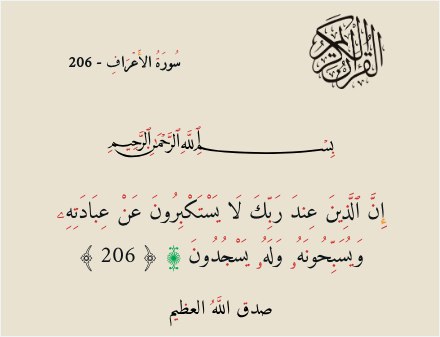 القرآن الكريم
سُورَةُ الأَعْرَافِ - 206
بِسْمِ ٱللَّهِ ٱلرَّحْمَٰنِ ٱلرَّحِيمِ
إِنَّ ٱلَّذِينَ عِندَ رَبِّكَ لَا يَسْتَكْبِرُونَ عَنْ عِبَادَتِهِۦ
وَيُسَبِّحُونَهُۥ وَلَهُۥ يَسْجُدُونَ ۩ ﴿ 206 ﴾
صدق اللَّهُ العظيم